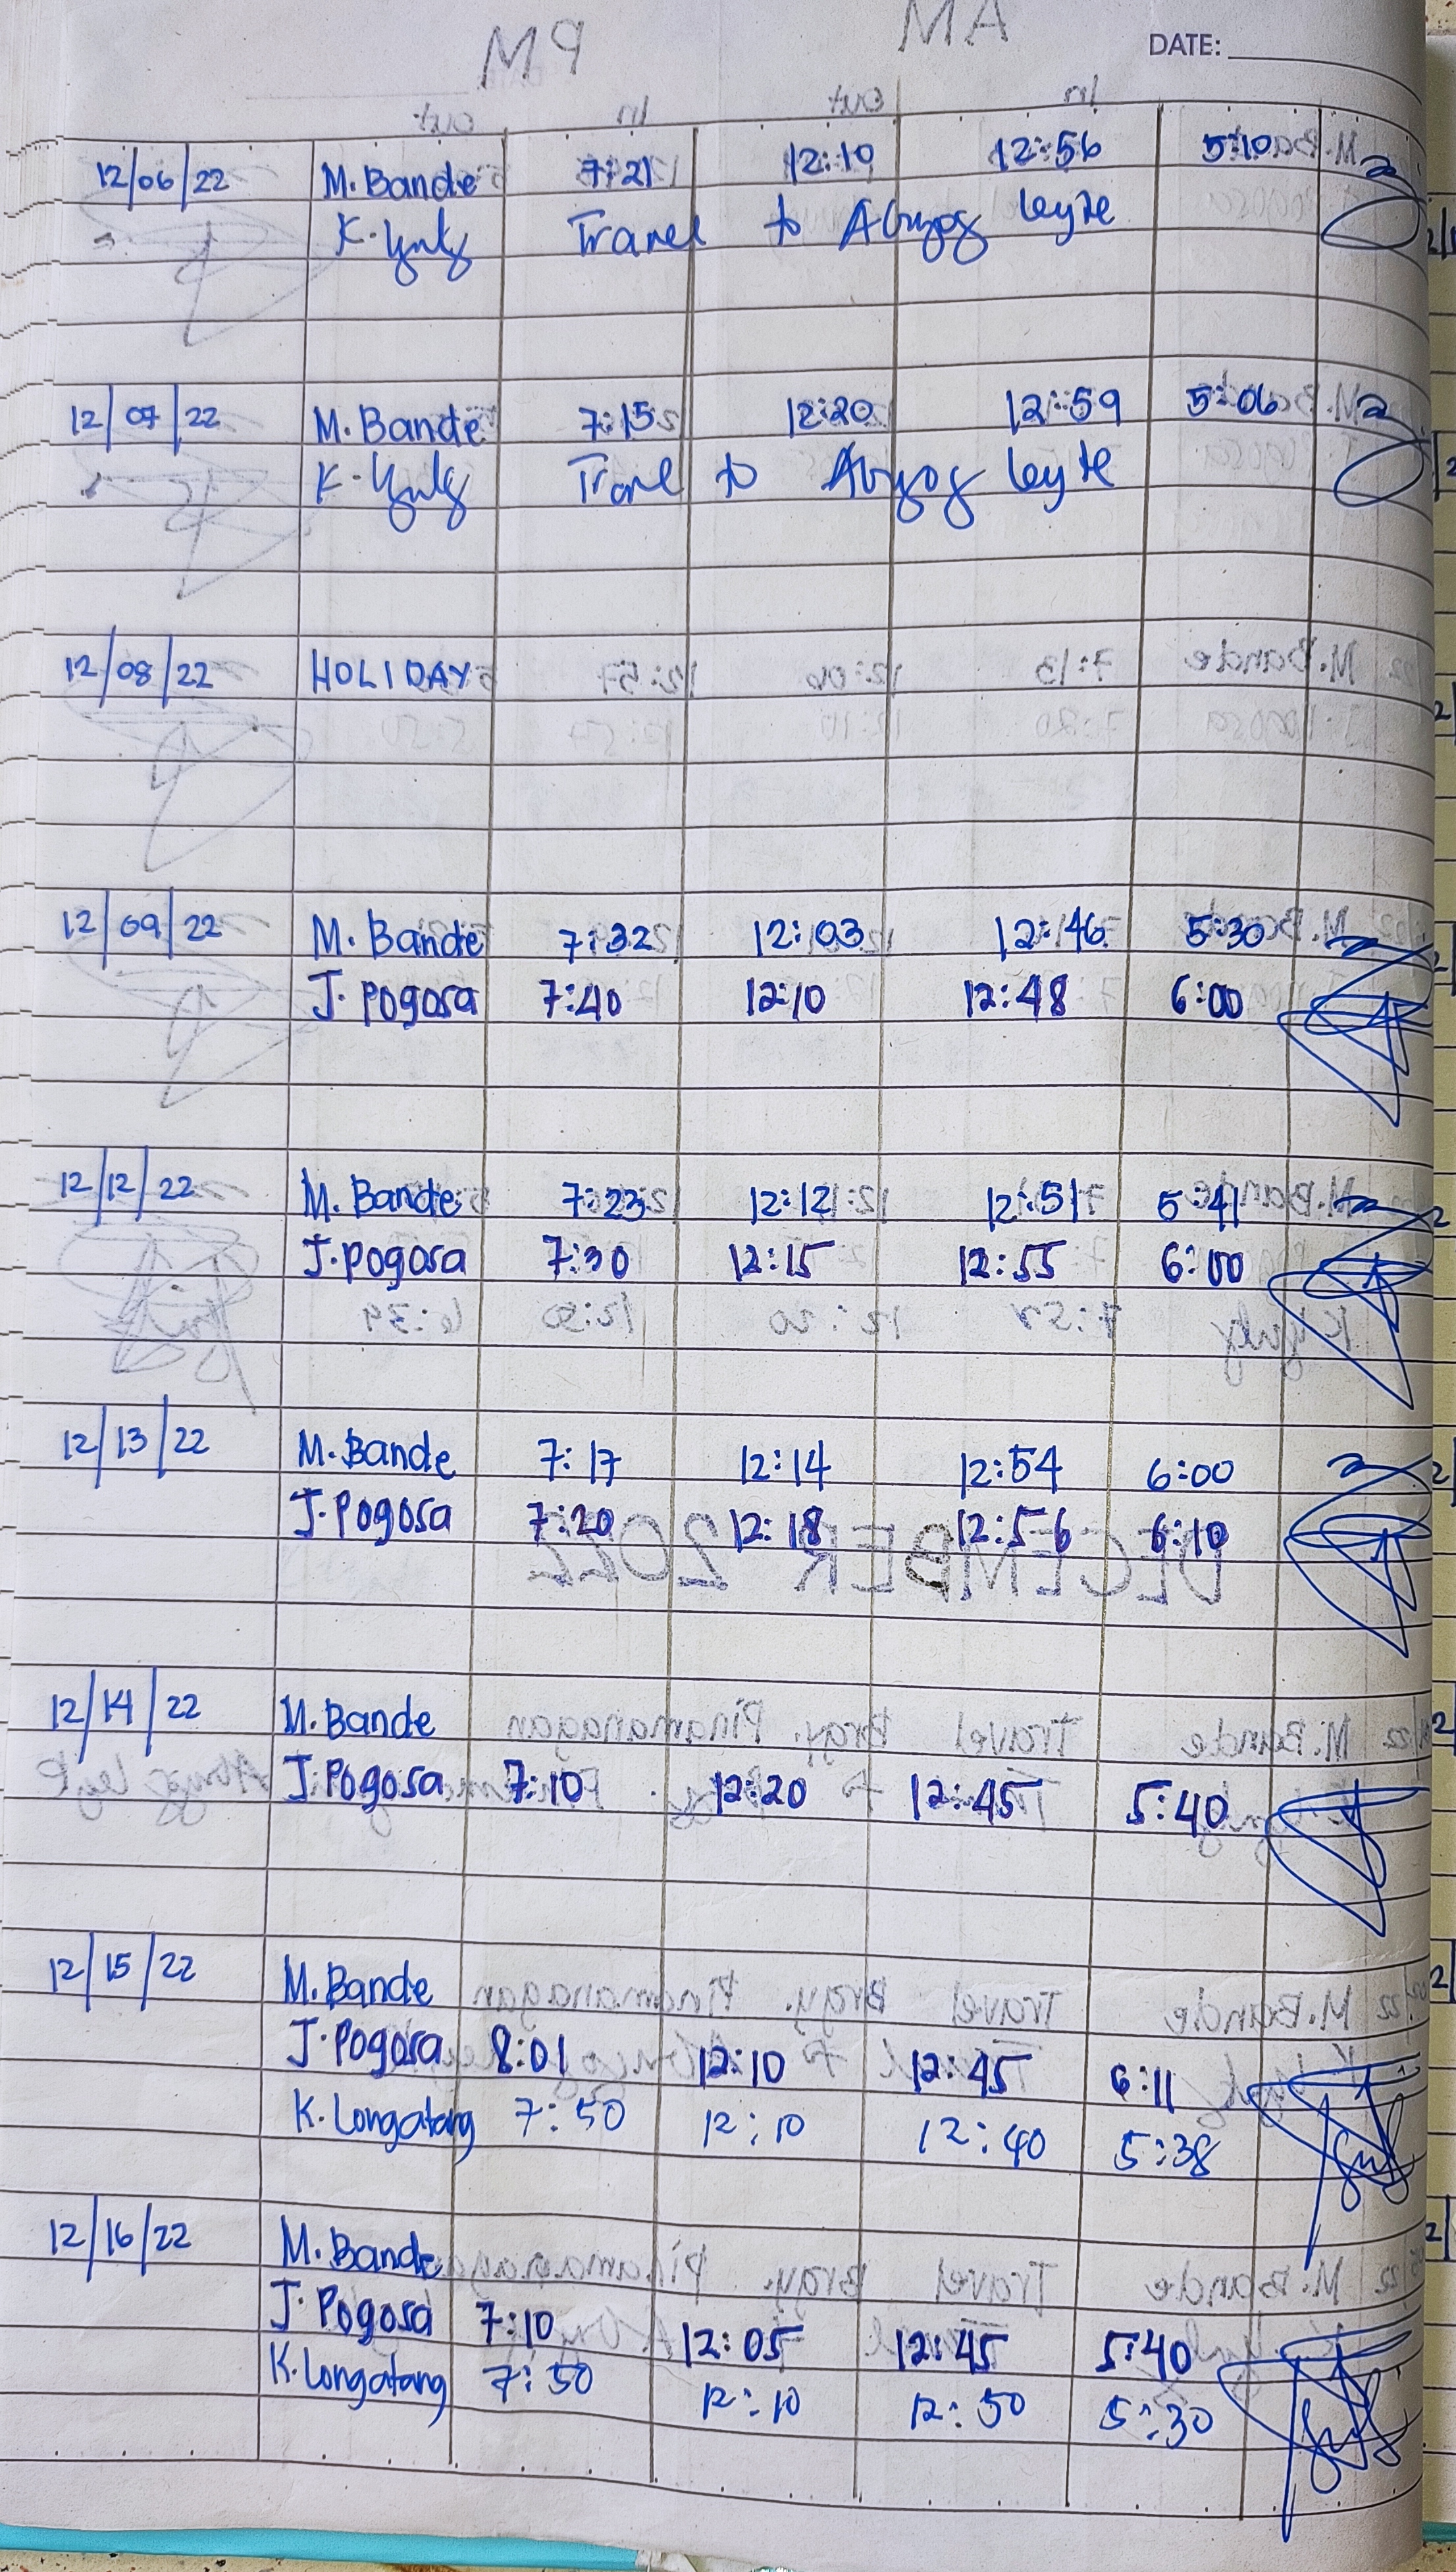 DATE:
12/06/22 M. Bande 7:21 12:10 12:56 5:10
K. Travel to Abuyog Leyte
12/07/22 M. Bande 7:15 12:20 12:59 5:06
K. Travel to Abuyog Leyte
12/08/22 HOLIDAY
12/09/22 M. Bande 7:32 12:03 12:46 5:30
J. Pogosa 7:40 12:10 12:48 6:00
12/12/22 M. Bande 7:23 12:12 12:51 5:41
J. Pogosa 7:30 12:15 12:55 6:00
12/13/22 M. Bande 7:17 12:14 12:54 6:00
J. Pogosa 7:20 12:18 12:56 6:10
12/14/22 M. Bande
J. Pogosa 7:10 12:20 12:45 5:40
12/15/22 M. Bande
J. Pogosa 8:01 12:10 12:45 6:11
K. Longatang 7:50 12:10 12:40 5:38
12/16/22 M. Bande
J. Pogosa 7:10 12:05 12:45 5:40
K. Longatang 7:50 12:10 12:50 5:30